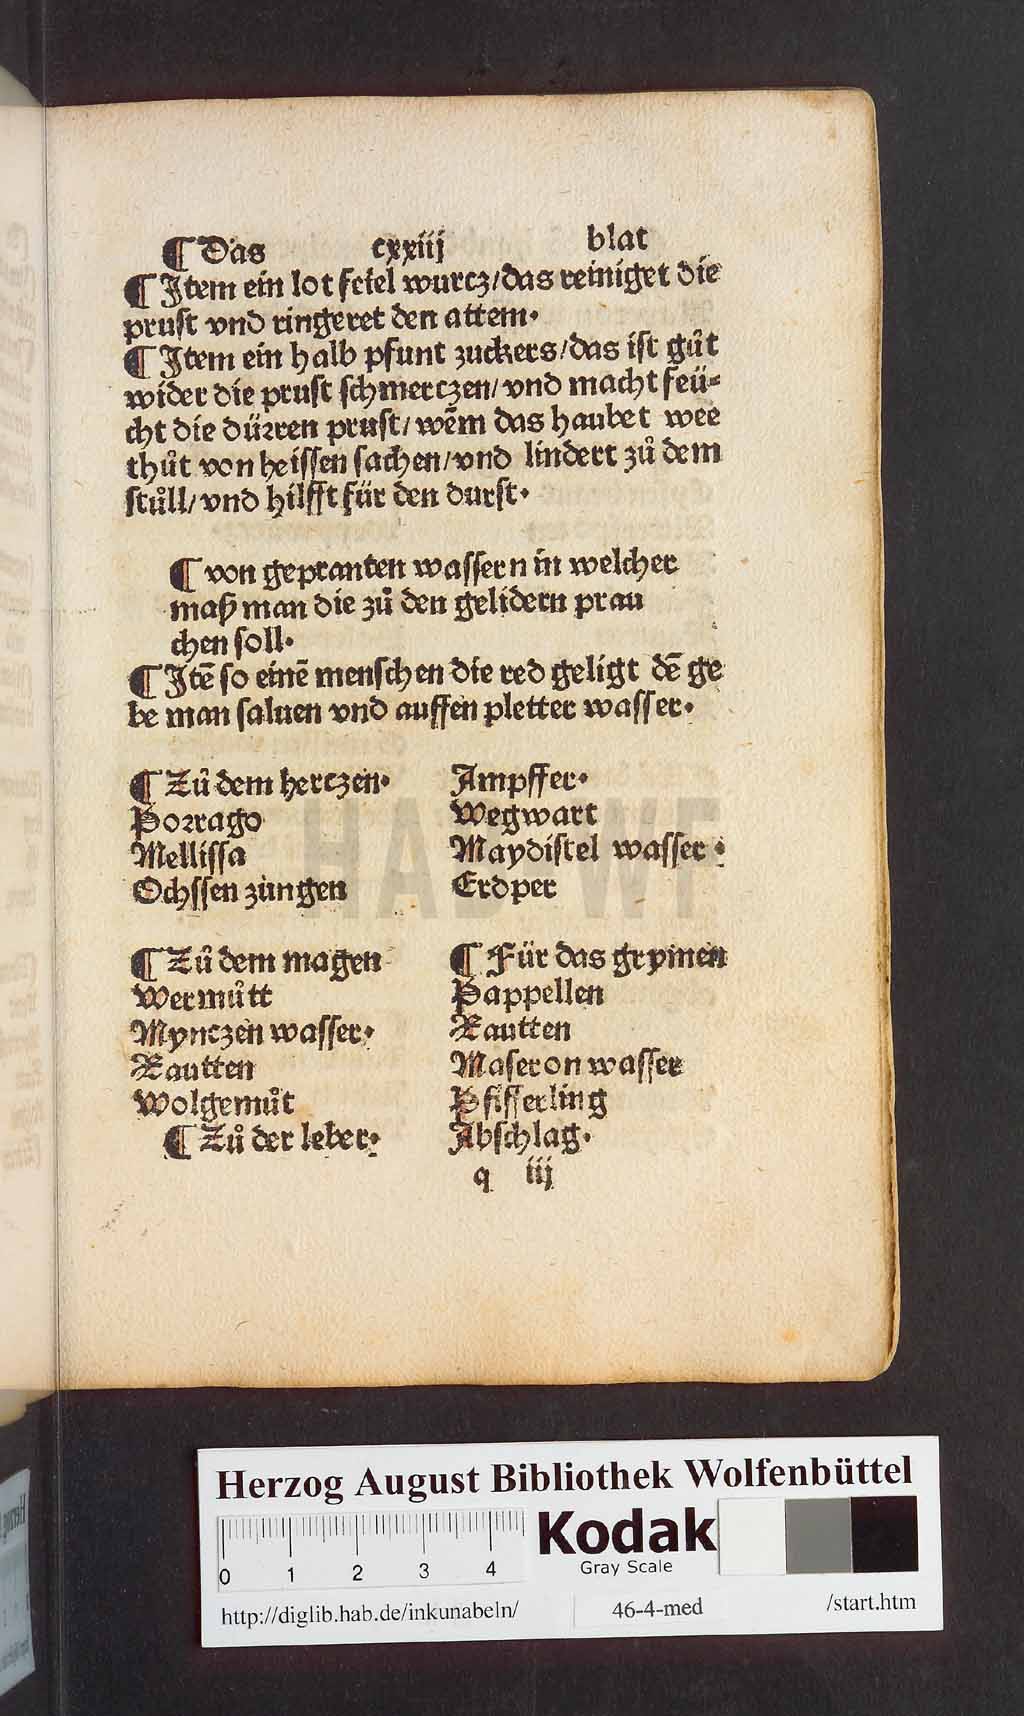 ¶ Das cxxiij blat
¶ Item ein lot feiel wurcz/das reiniget die
prust vnd ringeret den attem.
¶ Item ein halb pfunt zuckers/das ist gůt
wider die prust schmerczen/vnd macht feü⸗
cht die dürren prust/wẽm das haubet wee
thůt von heissen sachen/vnd lindert zů dem
stůll/vnd hilfft für den durst.
¶ von gepranten wassern in welcher
maß man die zů den gelidern prau
chen soll.
¶ Itẽ so einẽ menschen die red geligt dẽ ge
be man saluen vnd auffen pletter wasser.
¶ Zů dem herczen.
Porrago
Mellissa
Ochssen zungen
¶ Zů dem magen
Wermůtt
Mynczen wasser.
Rautten
Wolgemůt
¶ Zů der leber.
Ampffer.
Wegwart
Maydistel wasser.
Erdper
¶ Für das grymen
Pappellen
Rautten
Maseron wasser
Pfifferling
Abschlag.
q iij
HAB WF
Herzog August Bibliothek Wolfenbüttel
0 1 2 3 4
Kodak
Gray Scale
http://diglib.hab.de/inkunabeln/ 46-4-med /start.htm